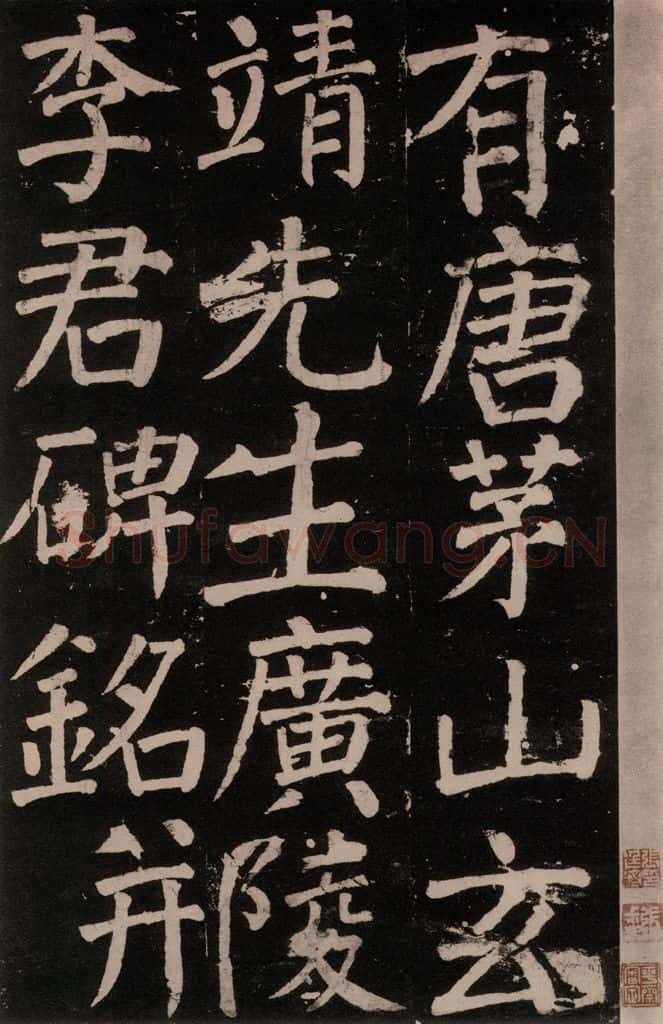 有唐茅山玄
靖先生廣陵
李君碑銘并
Shufawang.CN